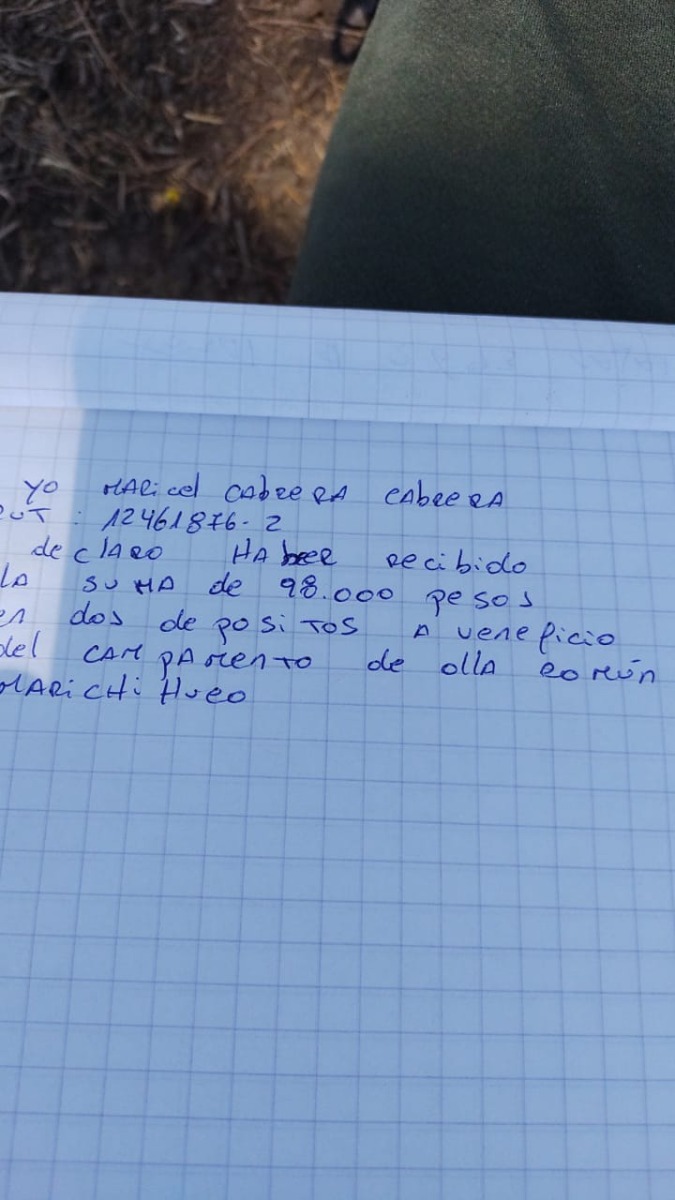 Yo MARicel CAbReRA CAbReeRA
RUT : 12461876-2
declARO HAbeR Recibido
LA SUMA de 98.000 pesos
en dos depositos A veneficio
del CAMpAMento de ollA común
MARiCHiHueo